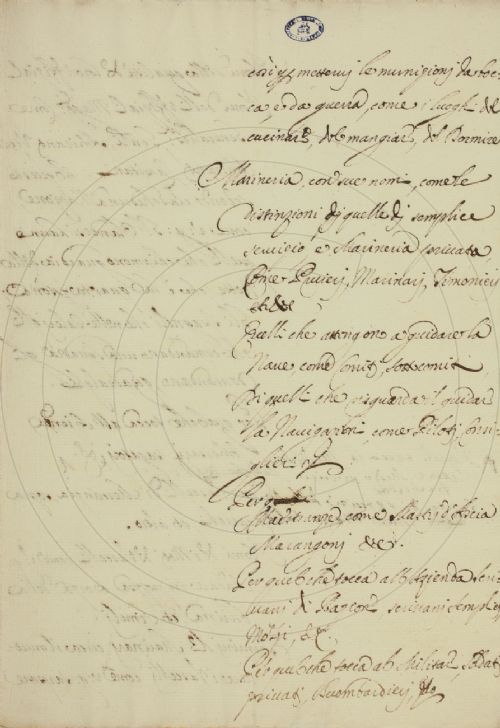 così p metterui le munigionj da boc-
ca, e da guerra, come i luoghi del
cucinare, del mangiare, del Dormire
Marineria, con sue nomi, come le
distinzioni di quelle di semplice
seruicio e Marineria
Come Pruierj, Marinarj, Timonierj
Quelli che attengono a guidare la
Naue come Comiti, sottocomiti
Di quelli che risguarda il guidar
la Nauigazione come Piloti, Consi-
glieri
Per
Maestranze, come Mastri d'Ascia
Marangonj &c.
Per quel che tocca all'Azienda scri-
uani di Razione, scriuani semplici
&c.
Per quel che tocca al Militar, soldati
priuati, Bombardierj